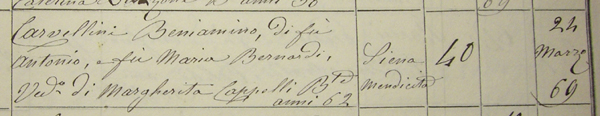 anni 50 69
Carvellini Beniamino, di fù
Antonio, e fù Maria Bernardi,
Vedo. di Margherita Cappelli Bte.
anni 62
Siena
Mendicità
40
24
Marzo
69